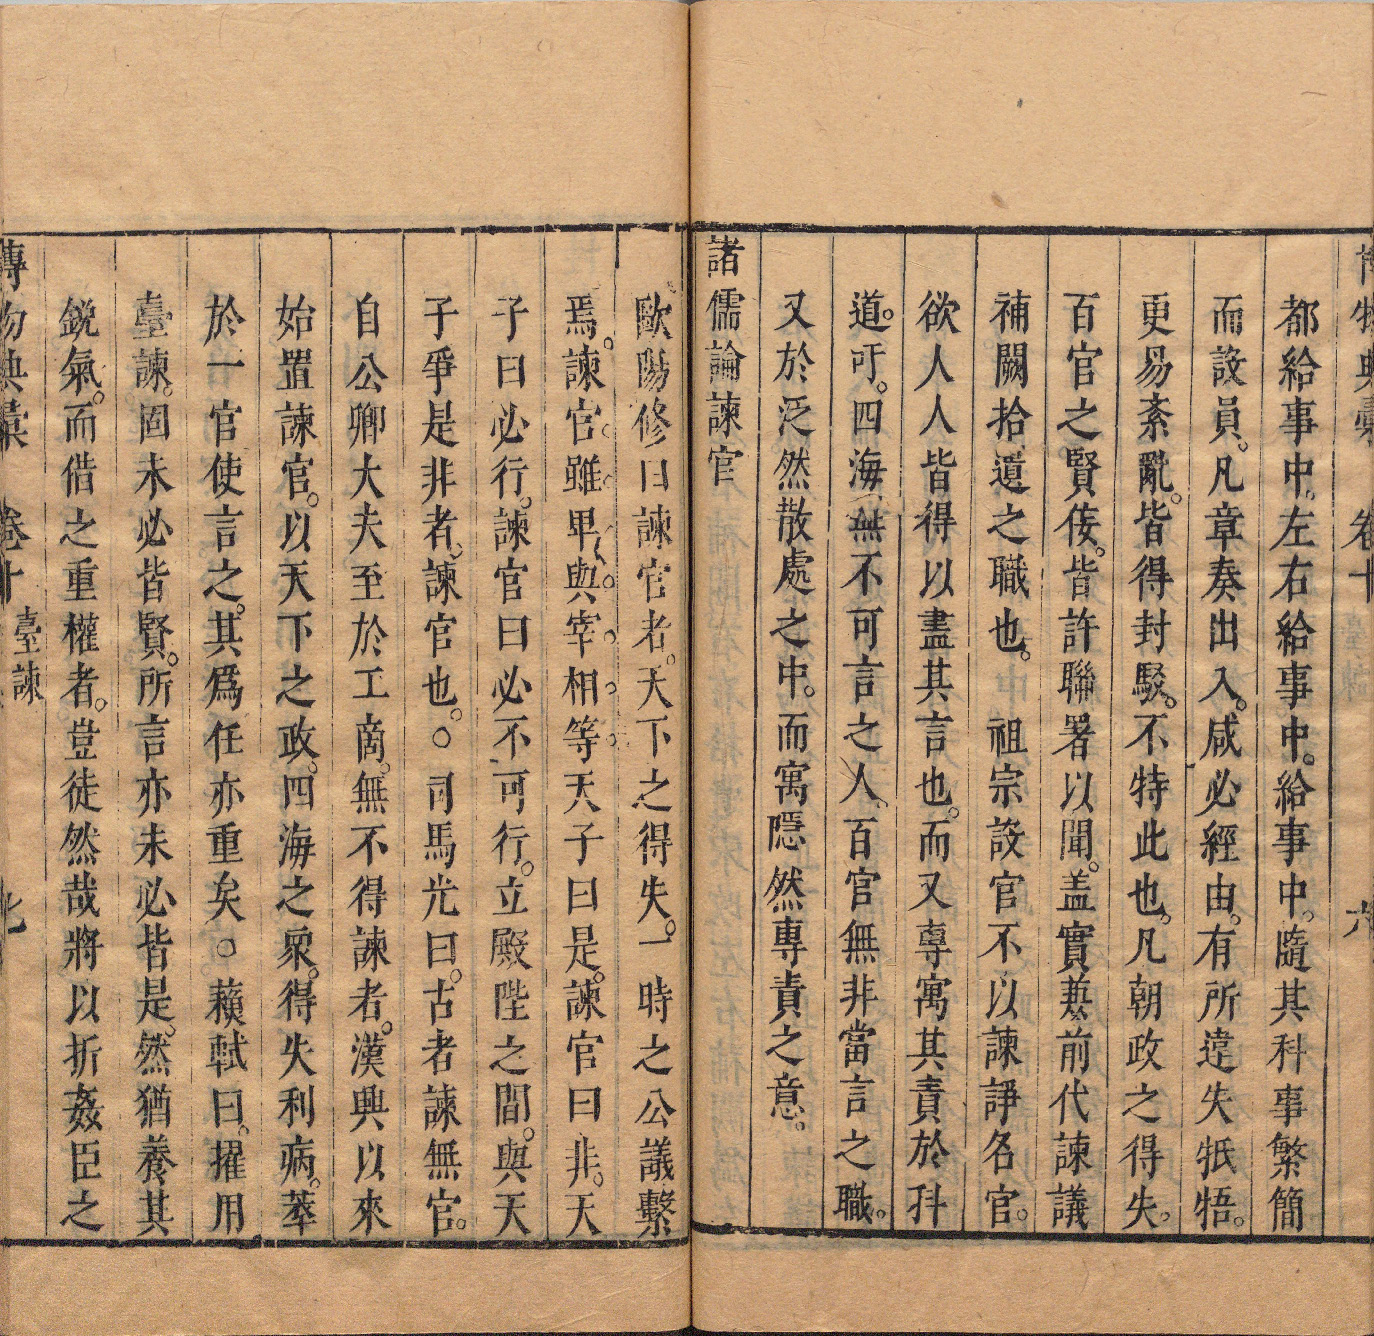 博物典彙　卷十　六
都給事中。左右給事中。給事中。隨其科事繁簡
而設員。凡章奏出入。咸必經由。有所違失牴牾。
更易紊亂。皆得封駁。不特此也。凡朝政之得失。
百官之賢佞。皆許聯署以聞。盖實兼前代諫議
補闕拾遺之職也。　祖宗設官不以諫諍名官。
欲人人皆得以盡其言也。而又專寓其責於科
道。吁。四海無不可言之人。百官無非當言之職。
又於泛然散處之中。而寓隱然專責之意。
諸儒論諫官
歐陽修曰諫官者。天下之得失。一時之公議繫
焉。諫官雖卑與宰相等天子曰是。諫官曰非。天
子曰必行。諫官曰必不可行。立殿陛之間。與天
子爭是非者。諫官也。○司馬光曰。古者諫無官。
自公卿大夫至於工商。無不得諫者。漢興以來
始置諫官。以天下之政。四海之衆。得失利病。萃
於一官使言之。其爲任亦重矣○蘇軾曰。擢用
臺諫。固未必皆賢。所言亦未必皆是。然猶養其
銳氣。而借之重權者。豈徒然哉將以折姦臣之
博物典彙　卷十　臺諫　七